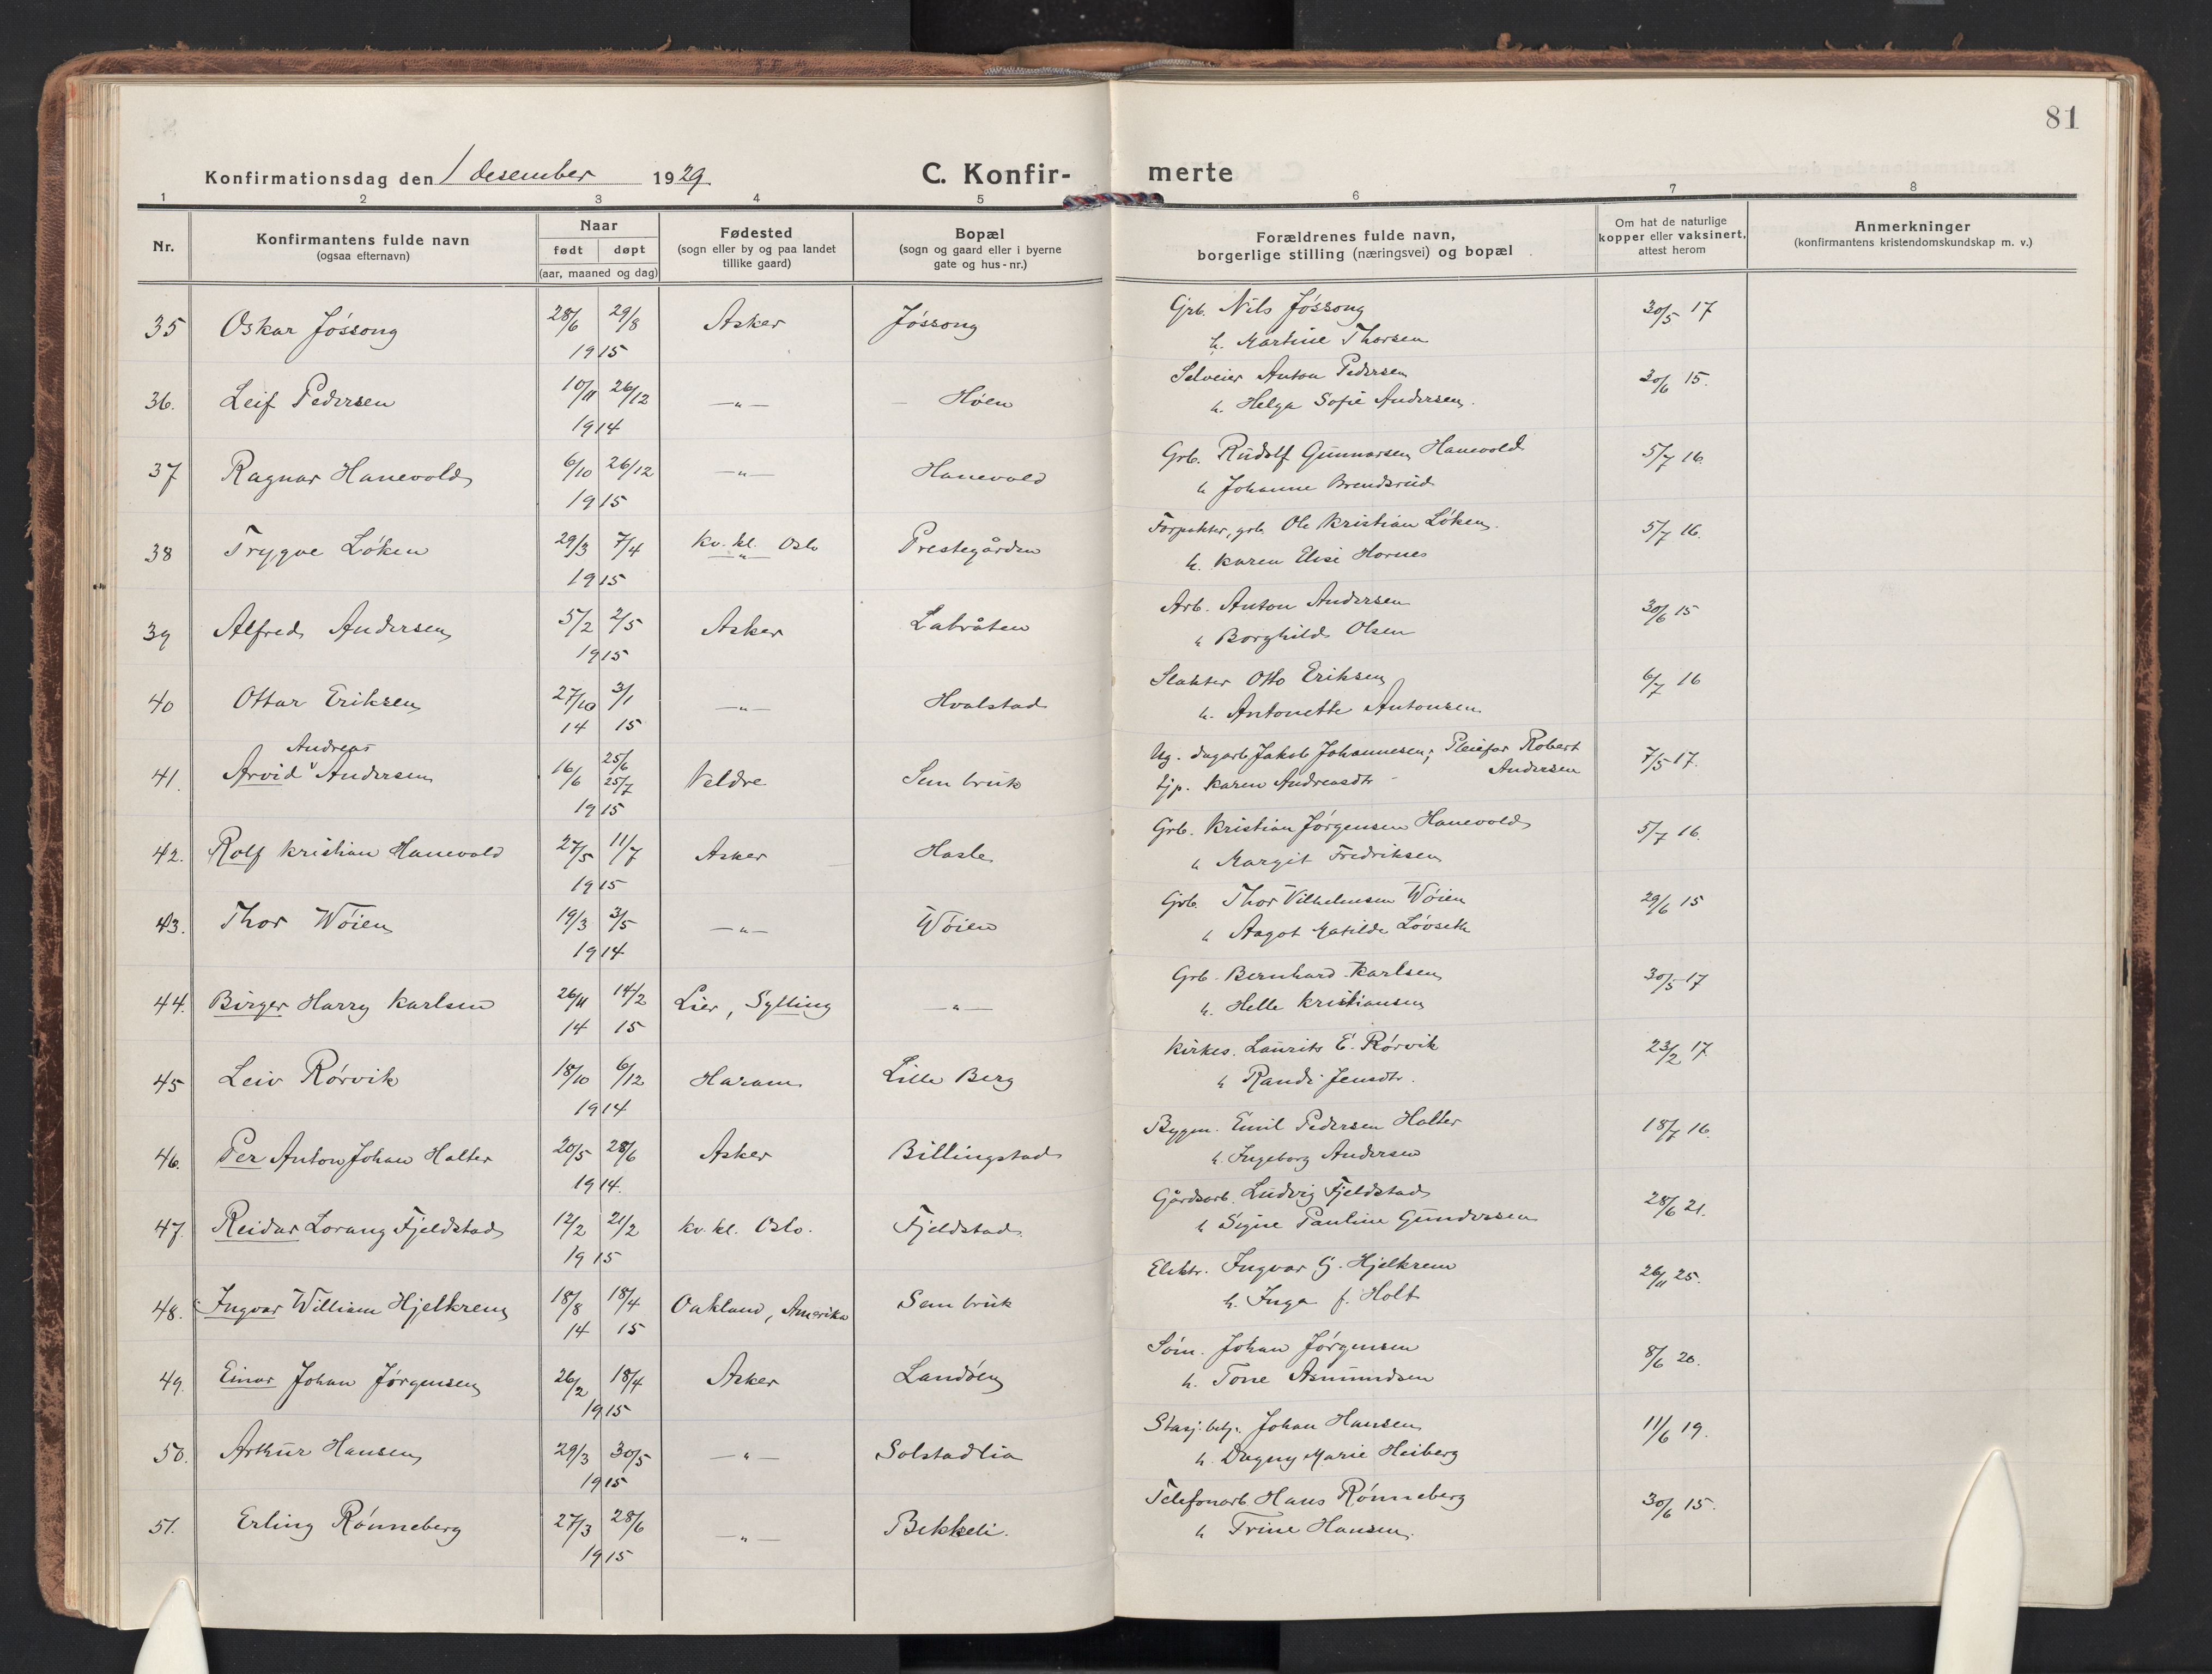 81
Konfirmationsdag den 1 desember 1929.
C. Konfir-
merte
1 2 3 4 5 6 7 8
Nr.
Konfirmantens fulde navn
(ogsaa efternavn)
Naar
født døpt
(aar, maaned og dag)
Fødested
(sogn eller by og paa landet
tillike gaard)
Bopæl
(sogn og gaard eller i byerne
gate og hus-nr.)
Forældrenes fulde navn,
borgerlige stilling (næringsvei) og bopæl
Om hat de naturlige
kopper eller vaksinert,
attest herom
Anmerkninger
(konfirmantens kristendomskundskap m. v.)
35 Oskar Jóssong 28/6 29/8 Asker Jóssong Grb. Nils Jóssong 30/5 17
1915 h. Martine Thorsen
36. Leif Pedersen 10/11 26/12 —"— — Høen Selveier Anton Pedersen 30/6 15.
1914 h. Helga Sofie Andersen.
37 Ragnar Hanevold 6/10 26/12 —"— Hanevold Grb. Rudolf Gunnarsen Hanevold 5/7 16.
1915 h Johanne Brendsrud
38 Trygve Løken 29/3 7/4 Kv. kl. Oslo Prestegården Forpakter, grb. Ole Kristian Løken. 5/7 16.
—"—
1915 h. Karen Elise Hornes
39 Alfred Andersen 5/2 2/5 Asker Labråten Arb. Anton Andersen 30/6 15
1915 h Borghild Olsen
40 Ottar Eriksen 27/10 3/1 —"— Hvalstad Slakter Otto Eriksen 6/7 16
14 15 h. Antonette Antonsen
41. Arvid Andreas Andersen 16/6 25/6 25/7 Veldre Sem bruk Ug. dagarb. Jakob Johannesen; Pleiefar Robert Andersen 7/5 17.
1915 tjp. Karen Andreasdtr
42. Rolf Kristian Hanevold 27/5 11/7 Asker Hasle Grb. Kristian Jørgensen Hanevold 5/7 16.
1915 h Margit Fredriksen
43. Thor Wøien 19/3 3/5 —"— Wøien Grb. Thor Vilhelmsen Wøien 29/6 15
1914 h Aagot Matilde Løvseth
44. Birger Harry Karlsen 26/11 14/2 Lier, Sylling —"— Grb. Bernhard Karlsen 30/5 17
14 15 h. Helle Kristiansen
45 Leiv Rørvik 18/10 6/12 Haram Lille Berg Kirkes. Laurits E. Rørvik 23/2 17
1914 h Randi Jensdtr.
46. Per Anton Johan Halter 20/5 28/6 Asker Billingstad Bygm. Emil Pedersen Halter 18/7 16.
1914. h. Ingeborg Andersen
47. Reidar Lorang Fjeldstad 12/2 21/2 Kv. kl. Oslo. Fjeldstad Gårdsarb. Ludvig Fjeldstad 28/6 21.
1915 h Signe Pauline Gundersen
48. Ingvar William Hjelkrem 18/8 18/4 Oakland, Amerika Sem bruk Elektr. Ingvar G. Hjelkrem 26/11 25.
14 15 h. Inga f. Holt
49. Einar Johan Jørgensen 26/2 18/4 Asker Landøen Sóm. Johan Jørgensen 8/6 20.
1915 h. Tone Asmundsen
50. Arthur Hansen 29/3 30/5 —"— Solstadlia Stasj.betj. Johan Hansen 11/6 19.
1915 h. Dagny Marie Heiberg
51. Erling Rønneberg 27/3 28/6 —"— Bekkeli. Telefonarb. Hans Rønneberg 30/6 15.
1915 h Trine Hansen.